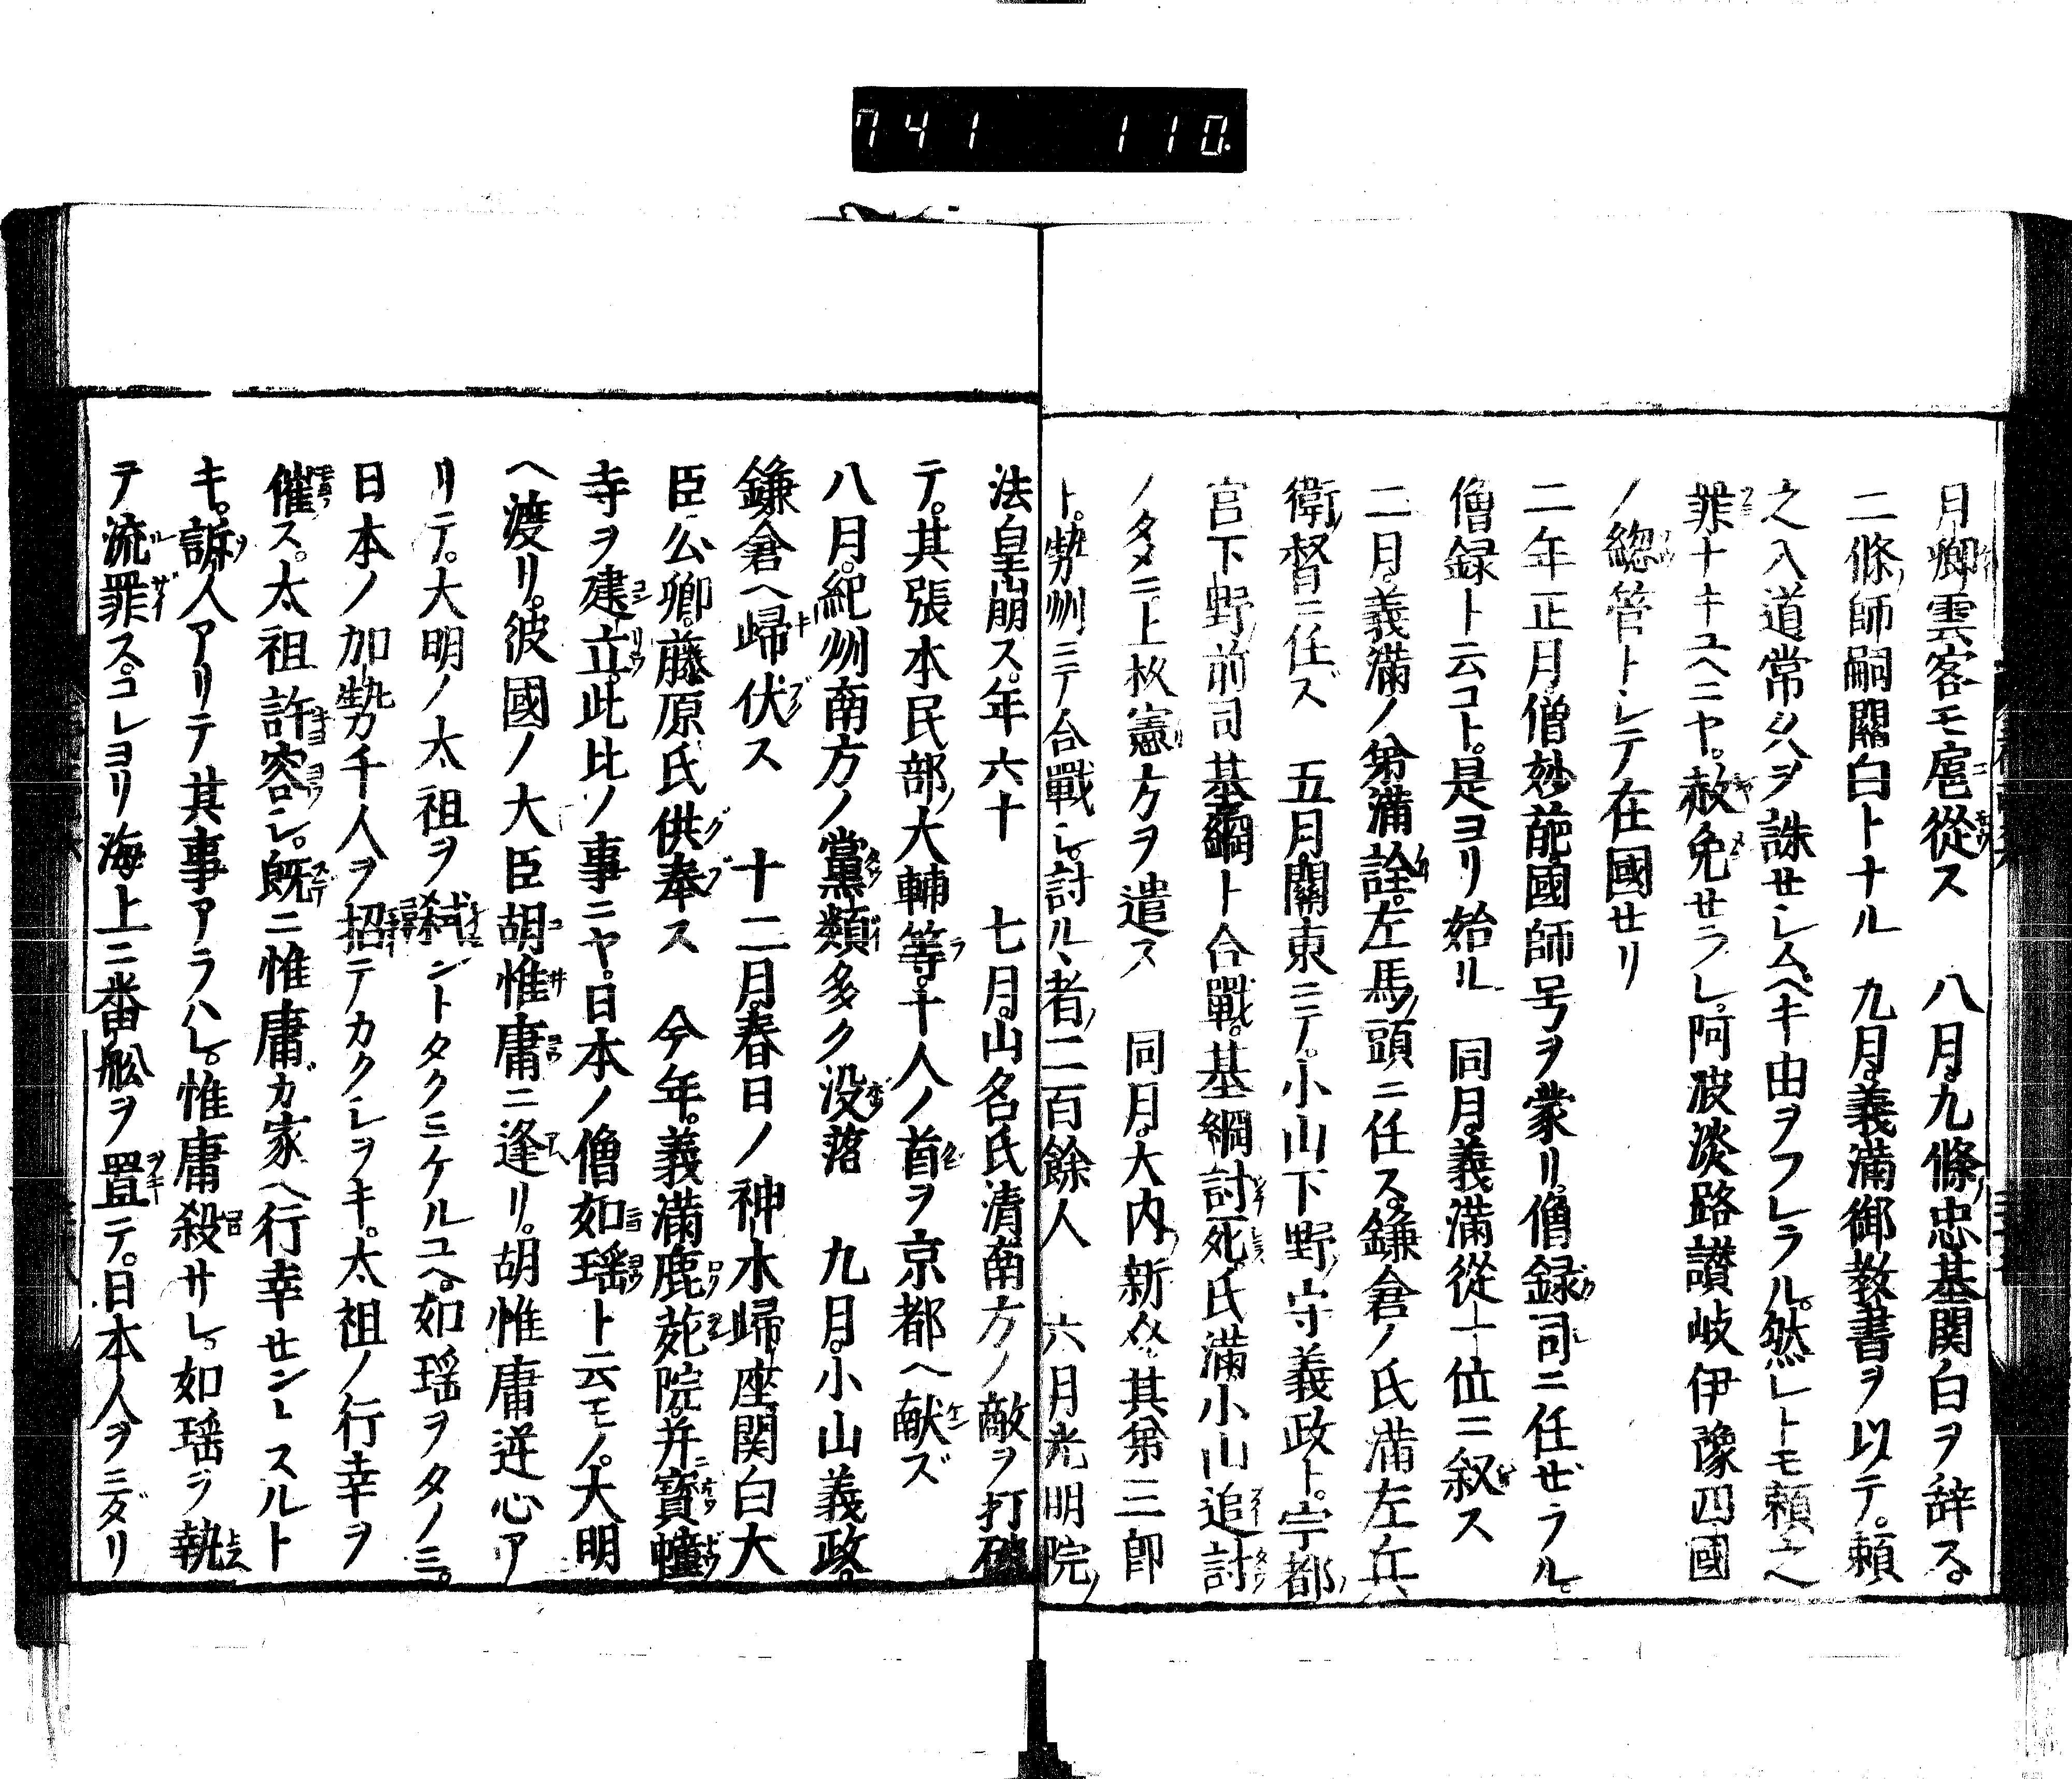 741 110
月卿雲客モ扈從ス 八月。九條忠基関白ヲ辞ス。
二條師嗣關白トナル 九月。義満御教書ヲ以テ。頼
之入道常久ヲ誅セシムヘキ由ヲフレラル。然レトモ頼之
罪ナキユヘニヤ。赦免セラレ。阿波淡路讃岐伊豫四國
ノ総管トシテ在國セリ
二年正月。僧妙葩國師号ヲ蒙リ。僧録司ニ任ゼラル。
僧録ト云コト。是ヨリ始ル 同月。義満從一位ニ叙ス
二月。義満ノ弟満詮。左馬頭ニ任ス。鎌倉ノ氏満左兵
衛督ニ任ズ 五月關東ニテ。小山下野守義政ト。宇都
宮下野前司基綱ト合戰。基綱討死。氏満小山追討
ノタメニ上杦憲方ヲ遣ス 同月。大内新介其弟三郎
ト。勢州ニテ合戰シ。討ルヽ者二百餘人 六月光明院
法皇崩ス。年六十 七月。山名氏清南方ノ敵ヲ打破
テ。其張本民部大輔等。十人ノ首ヲ京都ヘ献ズ
八月。紀州南方ノ黨類多ク没落 九月。小山義政。
鎌倉ヘ歸伏ス 十二月。春日ノ神木歸座関白大
臣公卿。藤原氏供奉ス 今年。義満鹿苑院并寳幢
寺ヲ建立。此比ノ事ニヤ。日本ノ僧如瑶ト云モノ。大明
ヘ渡リ。彼國ノ大臣胡惟庸ニ逢リ。胡惟庸逆心ア
リテ。大明ノ太祖ヲ弑ントタクミケルユヘ。如瑶ヲタノミ。
日本ノ加勢千人ヲ招テカクレヲキ。太祖ノ行幸ヲ
催ス。太祖許容シ。既ニ惟庸ガ家ヘ行幸セントスルト
キ。訴人アリテ其事アラハレ。惟庸殺サレ。如瑶ヲ執
テ流罪ス。コレヨリ海上ニ番舩ヲ置テ。日本人ヲミダリ